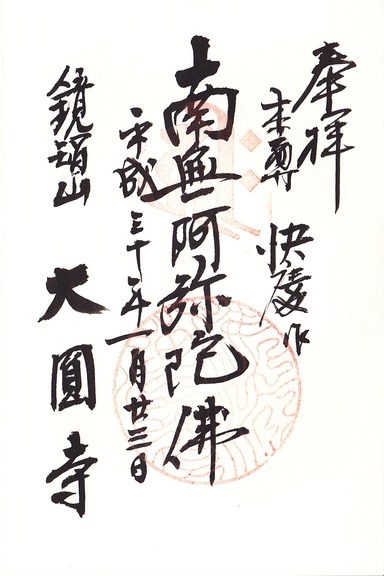 奉拝
本尊 快慶作
南無阿弥陀佛
平成三十年一月廿三日
大圓寺